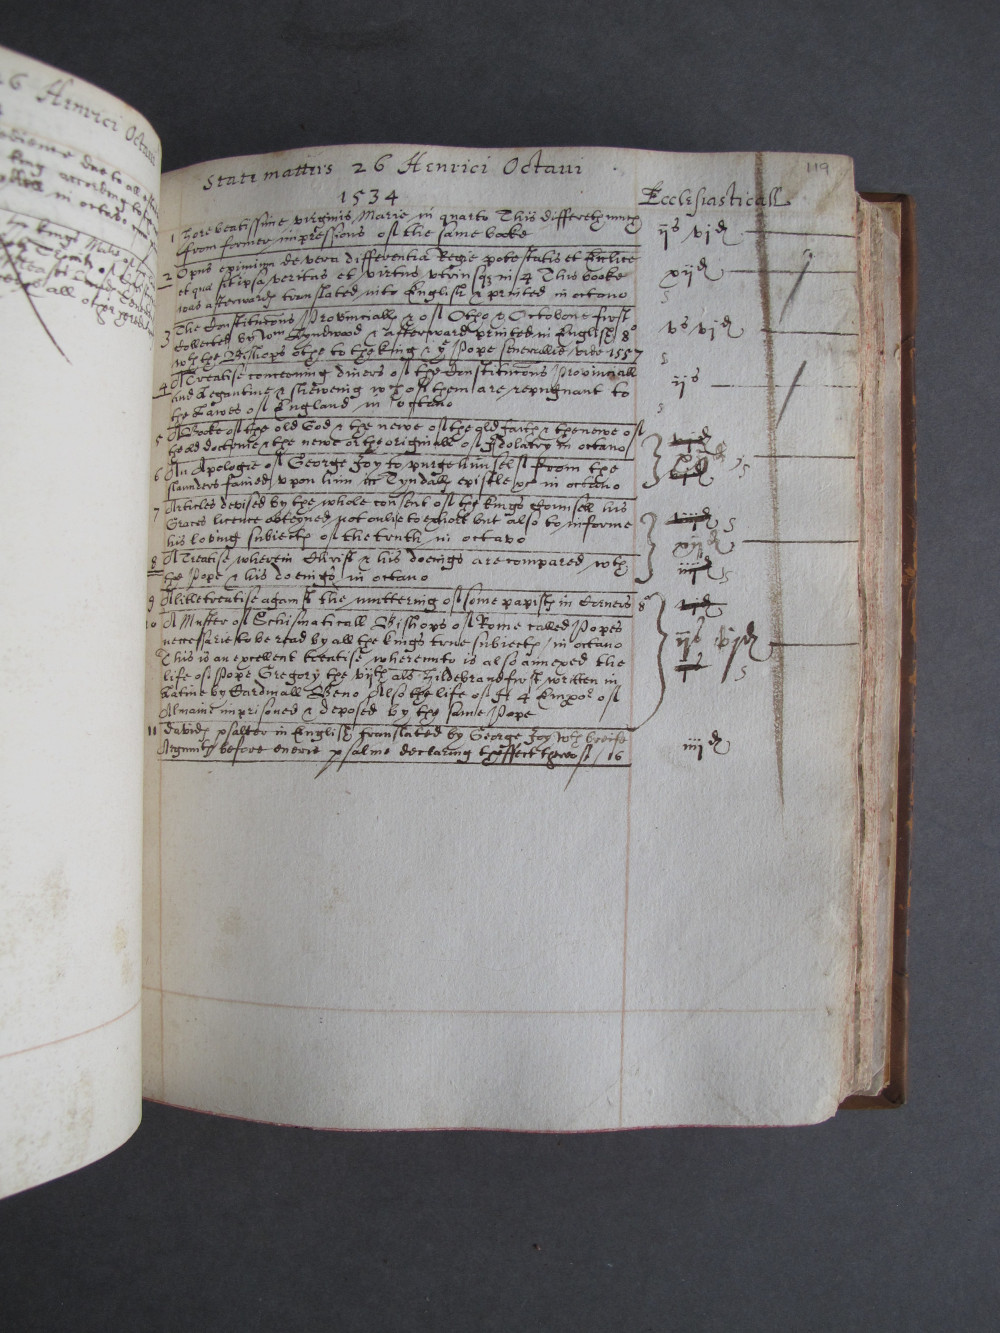 26 Henrici Octavi
State matters 26 Henrici Octavi
119
1534
Ecclesiasticall
1 Hore beatissime virginis Marie in quarto This differeth much
from former impressions of the same booke
ijs vjd
2 Opus eximium de vera differentia Regie potestatis et Ecclie
et qua sit ipsa veritas et virtus utriusque in 4 This booke
was afterwards translated into English & printed in octavo
xijd
s
3 The Constitucons Provinciall & of Otho & Octobone first
Collected by Wm Lyndwood & afterward printed in English 8o
wth the Bishops othe to the king & ye Pope severallie 1557
vs vjd
s
4 A Treatise concerning divers of the Constitucons Provinciall
and Legantine & shewing wch of them are repugnant to
the Lawes of England in octavo
ijs
s
5 A Booke of the old God & the newe of the old faith & the newe of
the old doctrine & the newe or the originall of Idolatry in octavo
6 An Apologie of George Joy to purge himself from the
slaunders fained upon him in Tyndalls epistle &c in octavo
7 Articles devised by the whole consent of the kings Counsell his
Graces licence obteyned not onlie to exhort but also to informe
his loving subiects of the truth in octavo
xijd
8 A Treatise wherein Christ & his doeings are compared wth
the Pope & his doeings in octavo
iiijd s
9 A litle treatise against the muttering of some papists in Corners 8o
10 A Muster of Schismaticall Bishops of Rome called Popes
necessarie to be read by all the kings trwe subiects in octavo
ijs vjd
This is an excellent treatise whereunto is also annexed the
life of Pope Gregory the vijth als Hildebrand first written in
s
Latine by Cardinall Beno Also the life of H 4 Empor of
Almaine imprisoned & deposed by the same Pope
11 Davids psalter in English translated by George Joy wth breife
Argumts before everie psalme declaring theffect thereof 16
iiijd